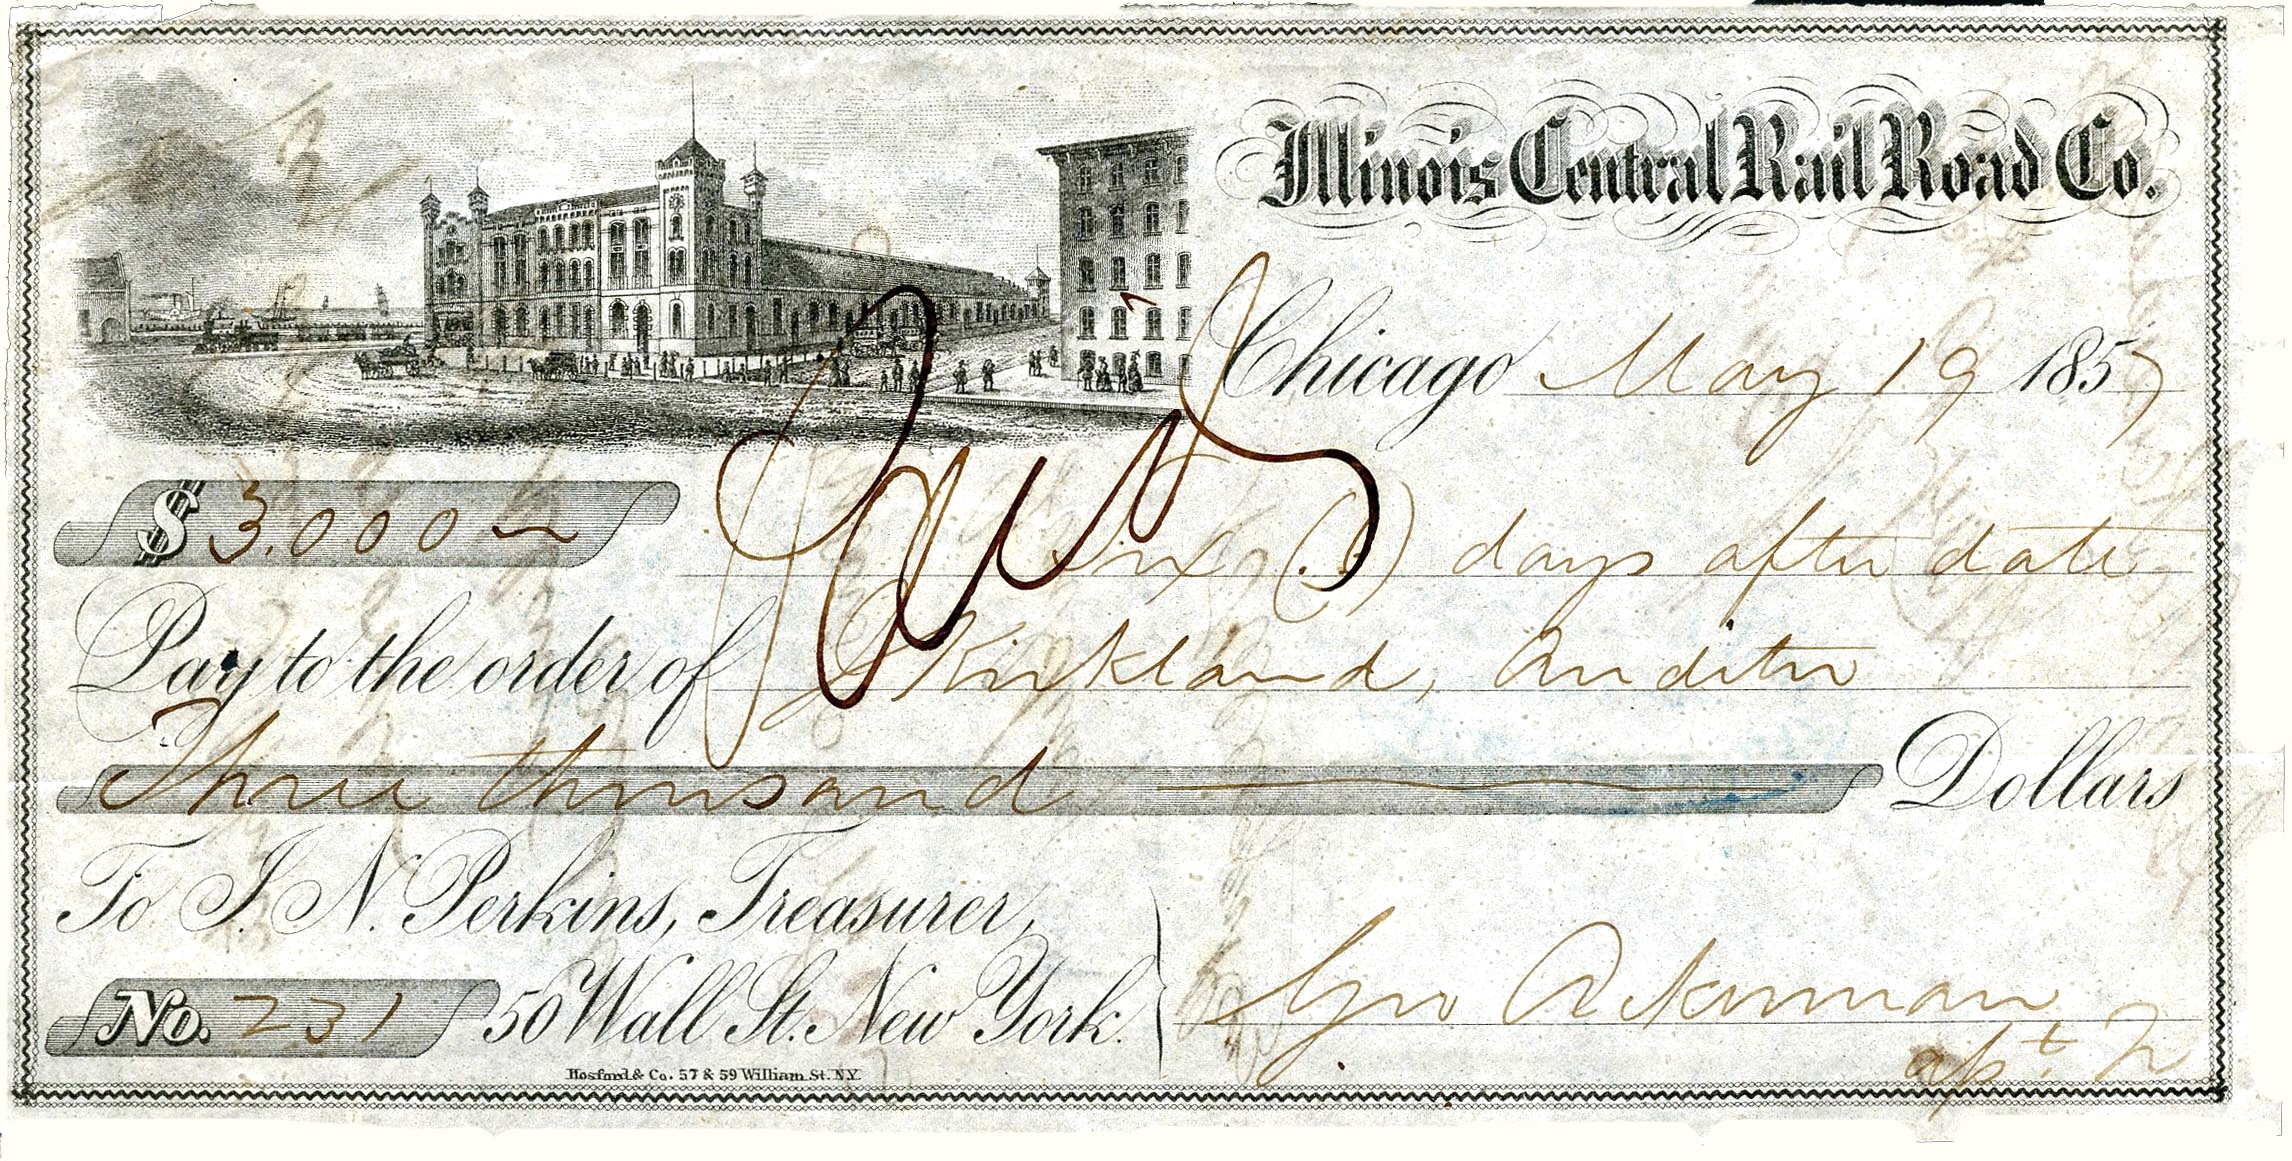 Illinois Central Rail Road Co.
Chicago May 19 1857
$ 3.000 Six (6) days after date
Paid
Pay to the order of J Kirkland, Auditor
Three thousand Dollars
To J. N. Perkins, Treasurer,
No. 231 50 Wall St. New York. Geo Ackerman
Hosford & Co. 57 & 59 William St. N.Y.